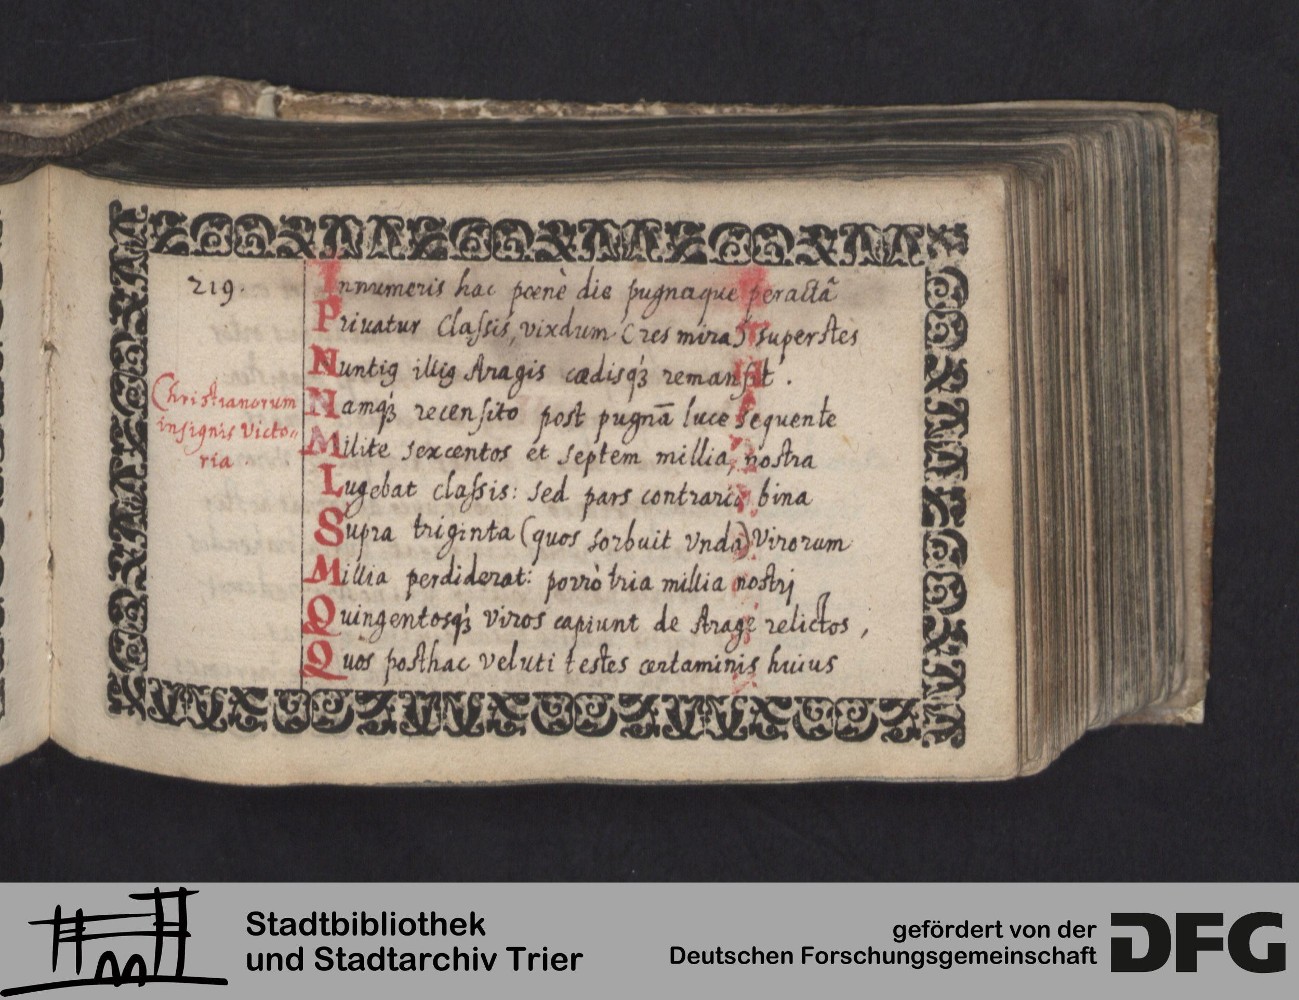 219.
Innumeris hac poenè die pugnaque peractã
Priuatur Classis, vixdum (res mira) superstes
Nuntig illig Aragis cædisq́3 remansit.
Namq́3 recensito post pugnã luce sequente
Christianorum
insignis Victo„
ria
Milite sexcentos et septem millia, nostra
Lugebat classis: sed pars contraria bina
Supra triginta (quos sorbuit vnda) Virorum
Millia perdiderat: porrò tria millia nostrj
Quingentosq́3 viros capiunt de Arage relictos,
Quos posthac veluti testes certaminis huius
Stadtbibliothek
und Stadtarchiv Trier
gefördert von der
Deutschen Forschungsgemeinschaft
DFG